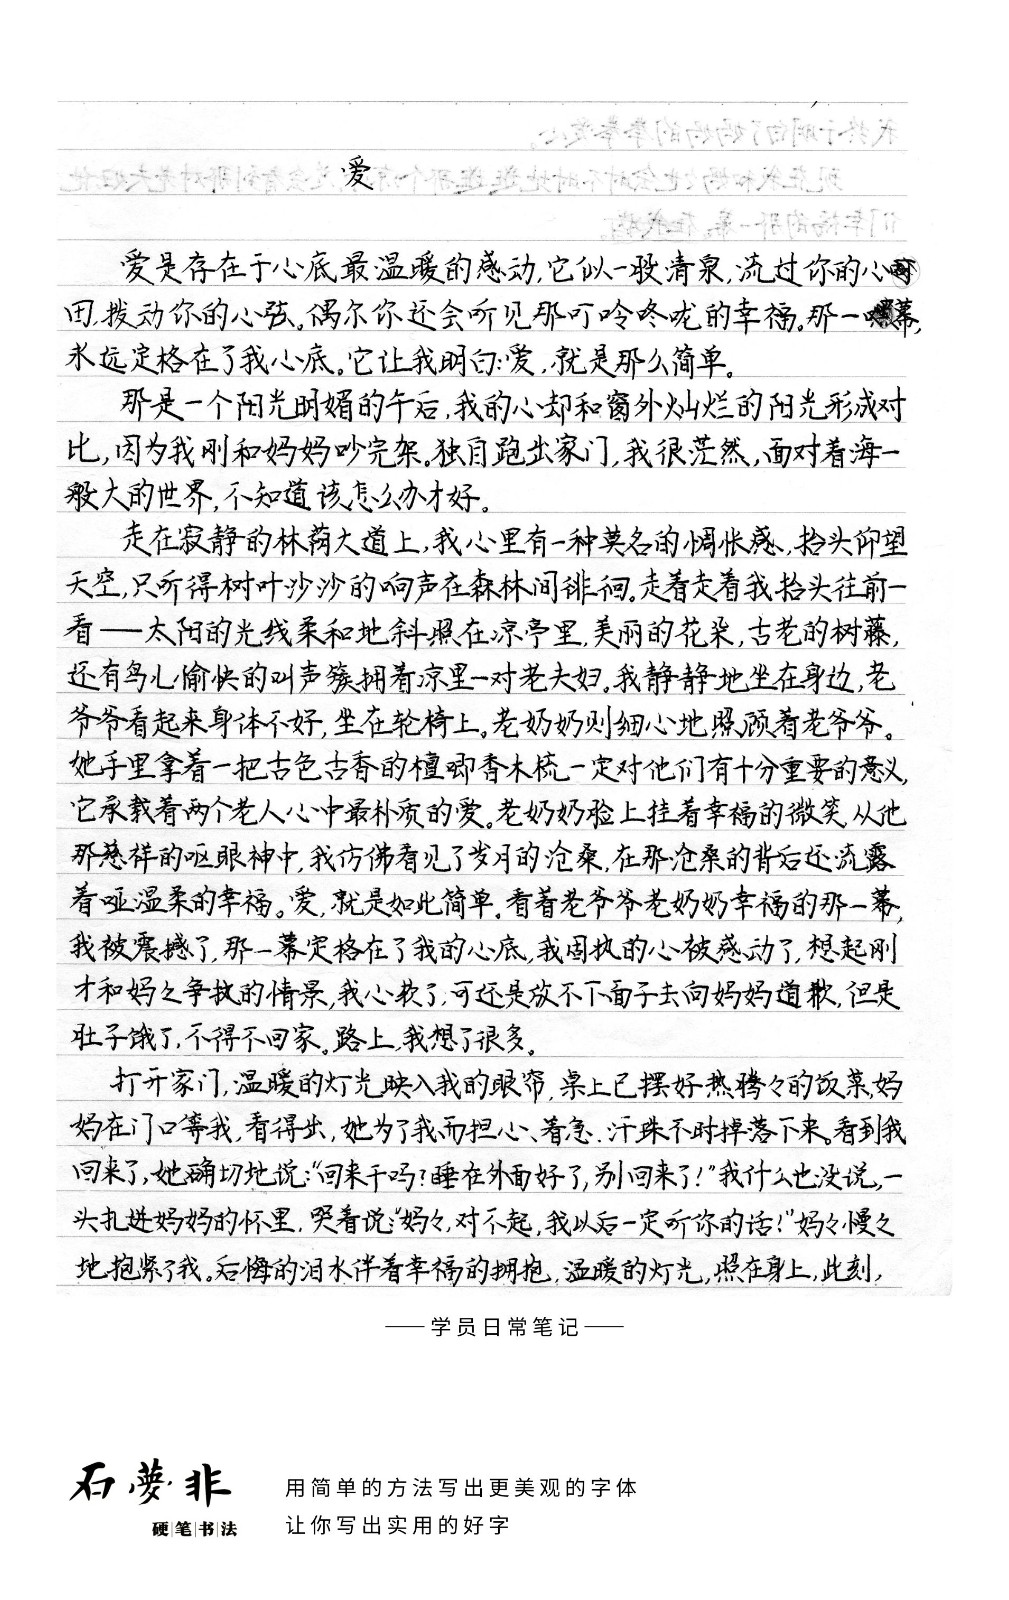 爱
爱是存在于心底最温暖的感动,它似一股清泉,流过你的心
田,拨动你的心弦。偶尔你还会听见那叮呤咚咙的幸福。那一幕,
永远定格在了我心底。它让我明白:爱,就是那么简单。
那是一个阳光明媚的午后,我的心却和窗外灿烂的阳光形成对
比,因为我刚和妈妈吵完架。独自跑出家门,我很茫然,面对着海一
般大的世界,不知道该怎么办才好。
走在寂静的林荫大道上,我心里有一种莫名的惆怅感,抬头仰望
天空,只听得树叶沙沙的响声在森林间徘徊。走着走着我抬头往前一
看——太阳的光线柔和地斜照在凉亭里,美丽的花朵,古老的树藤,
还有鸟儿愉快的叫声簇拥着凉里一对老夫妇。我静静地坐在身边,老
爷爷看起来身体不好,坐在轮椅上。老奶奶则细心地照顾着老爷爷。
她手里拿着一把古色古香的檀唧香木梳一定对他们有十分重要的意义,
它承载着两个老人心中最朴质的爱。老奶奶脸上挂着幸福的微笑,从他
那慈祥的呕眼神中,我仿佛看见了岁月的沧桑,在那沧桑的背后还流露
着哑温柔的幸福。爱,就是如此简单。看着老爷爷老奶奶幸福的那一幕,
我被震撼了,那一幕定格在了我的心底,我固执的心被感动了,想起刚
才和妈々争执的情景,我心软了,可还是放不下面子去向妈妈道歉,但是
肚子饿了,不得不回家。路上,我想了很多。
打开家门,温暖的灯光映入我的眼帘,桌上已摆好热腾々的饭菜,妈
妈在门口等我,看得出,她为了我而担心、着急,汗珠不时掉落下来。看到我
回来了,她确切地说:“回来干吗?睡在外面好了,别回来了!”我什么也没说,一
头扎进妈妈的怀里,哭着说:“妈々,对不起,我以后一定听你的话!”妈々慢々
地抱紧了我。后悔的泪水伴着幸福的拥抱,温暖的灯光,照在身上,此刻,
——学员日常笔记——
石梦非
硬笔书法
用简单的方法写出更美观的字体
让你写出实用的好字